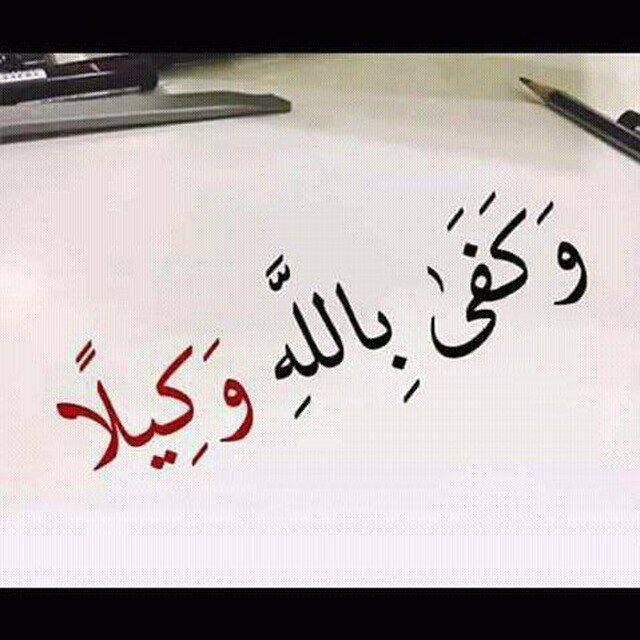 وَكَفَىٰ بِاللَّهِ وَكِيلًا